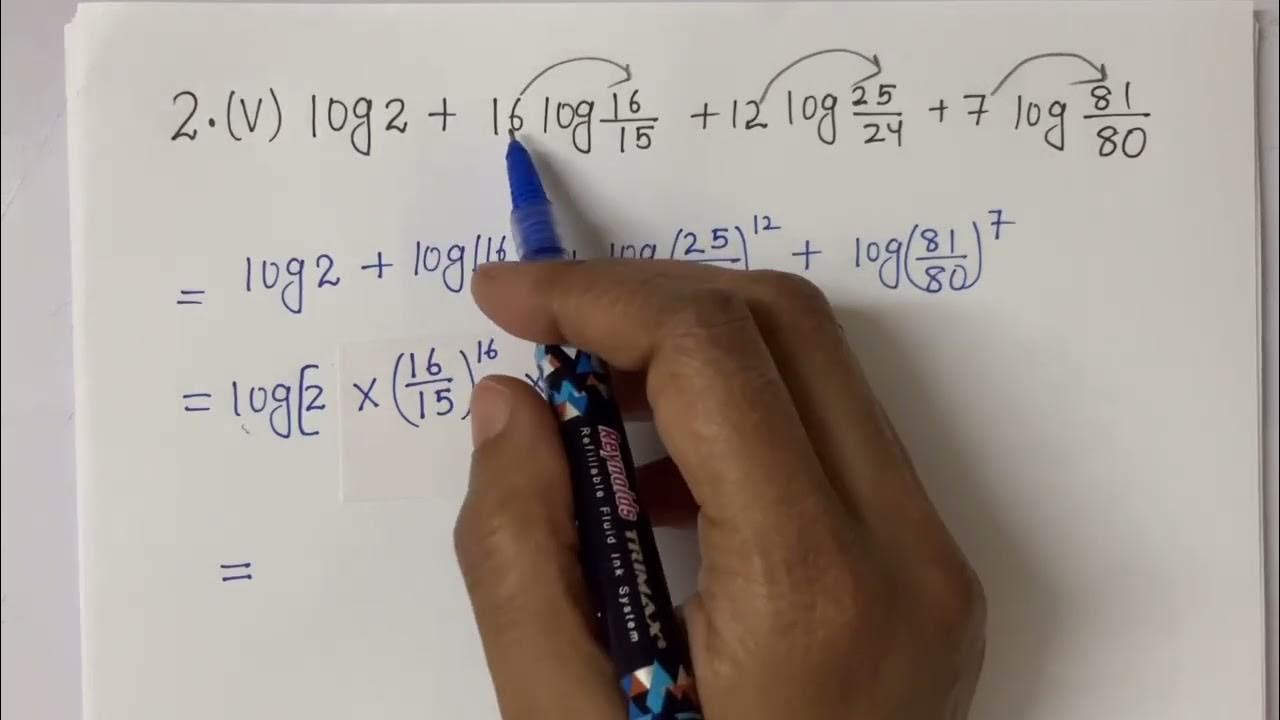 2.(V) log2 + 16 log 16/15 + 12 log 25/24 + 7 log 81/80
= log2 + log(16 (25)^12 + log(81/80)^7
= log[2 × (16/15)^16 ×
=
Reynolds TRIMAX
Refillable Fluid Ink System